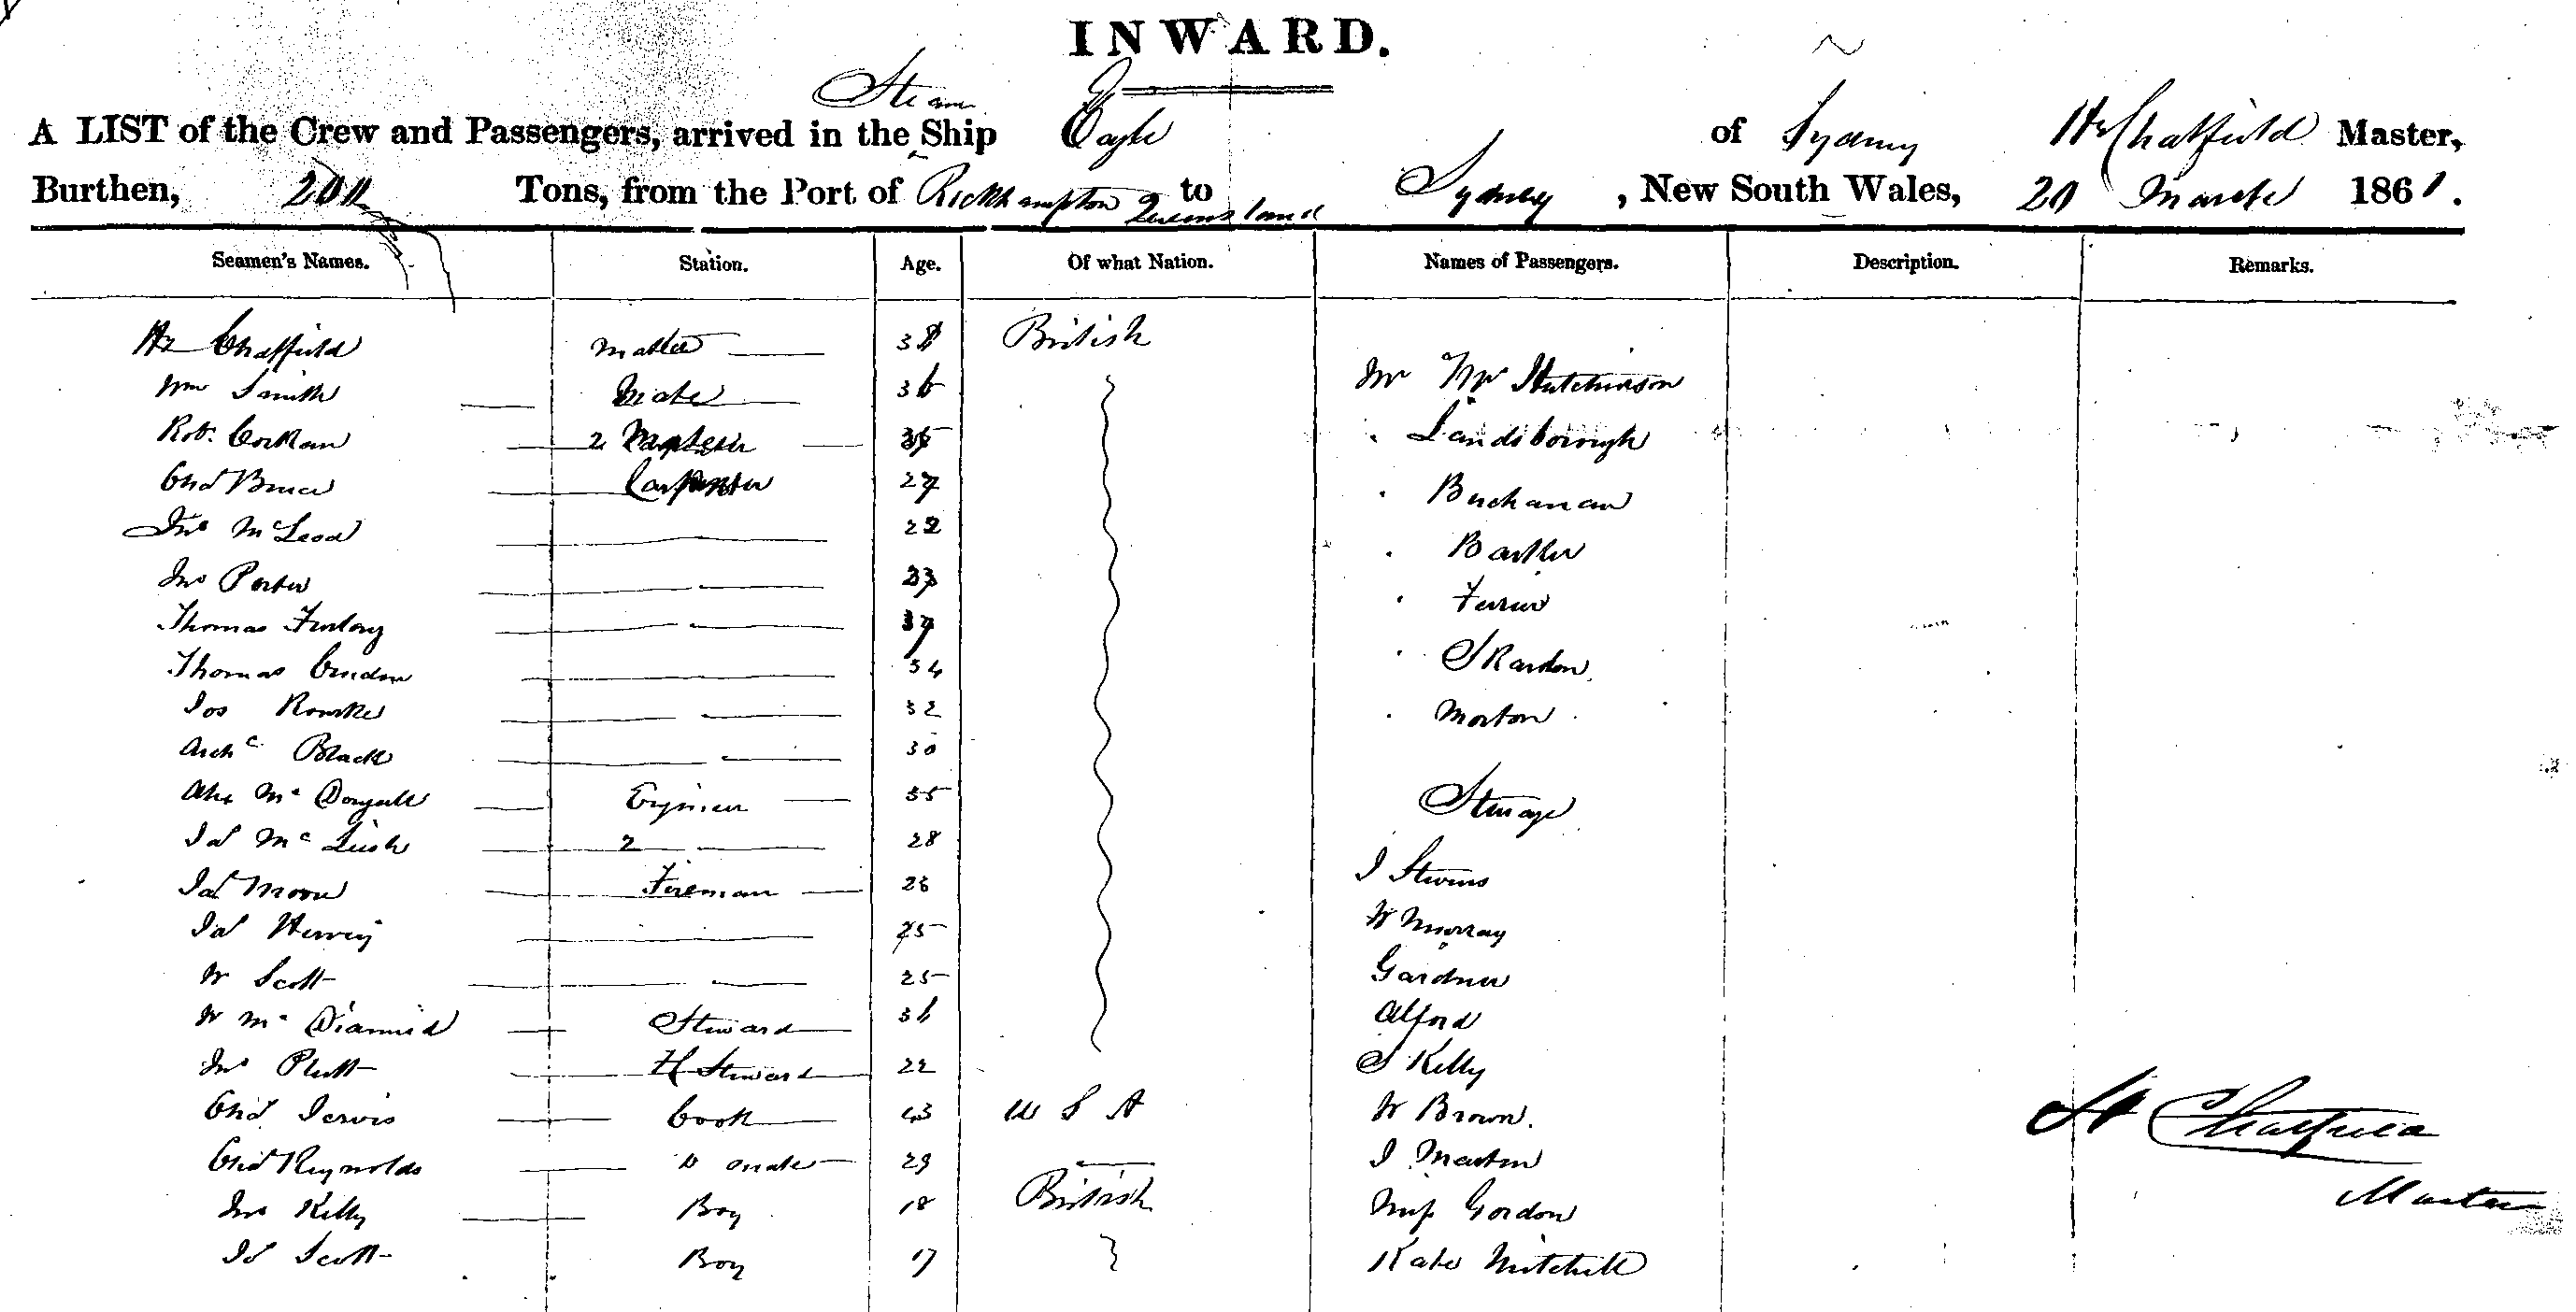 INWARD.
Steam
A LIST of the Crew and Passengers, arrived in the Ship Eagle of Sydney Hy Chatfield Master,
Burthen, 200 Tons, from the Port of Rockhampton Queensland to Sydney, New South Wales, 20 March 1861.
Seamen's Names. Station. Age. Of what Nation. Names of Passengers. Description. Remarks.
Hy Chatfield Master 38 British
Wm Smith Mate 36 Mr Hutchinson
Robt Corkan 2 35 Landsborough
Chas Bruce Carpenter 27 Buchanan
Jno McLeod 22
Jno Porter 23 Ferrier
Thomas 37
Thomas 34 Skardon
Jos Rourke 32 Morton
Archd Black 30
Alex McDougall Engineer 35 Steerage
Jas McLeish 2 28
Jas Moore Fireman 28 J Stevens
Jas Hervey 25 W Murray
W Scott 25 Gardner
W McDiarmid Steward 36 Alford
Jno Steward 22 S Kelly
Chas Jervis Cook 43 U S A W Brown.
Chas Reynolds mate 29 J Martin
Jno Kelly Boy 18 British Miss Gordon
Js Scott Boy 17 Kate Mitchell
H Chatfield
Master